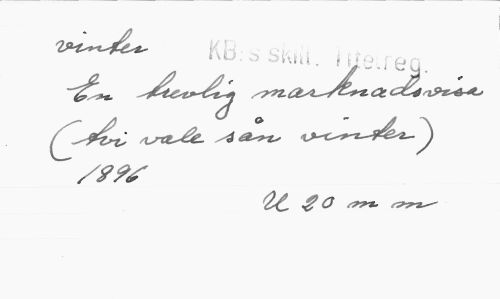 vinter
KB:s skill. Titelreg.
En trevlig marknadsvisa
(tvi vale sån vinter)
1896
U 20 m m